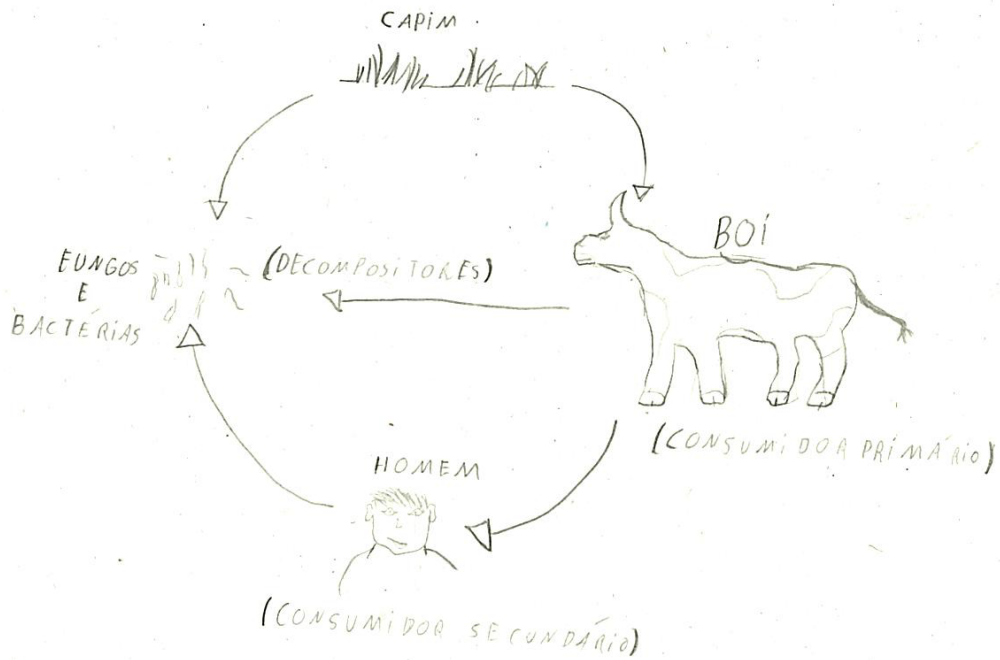 CAPIM
BOI
FUNGOS
E
BACTÉRIAS
(DECOMPOSITORES)
(CONSUMIDOR PRIMÁRIO)
HOMEM
(CONSUMIDOR SECUNDÁRIO)